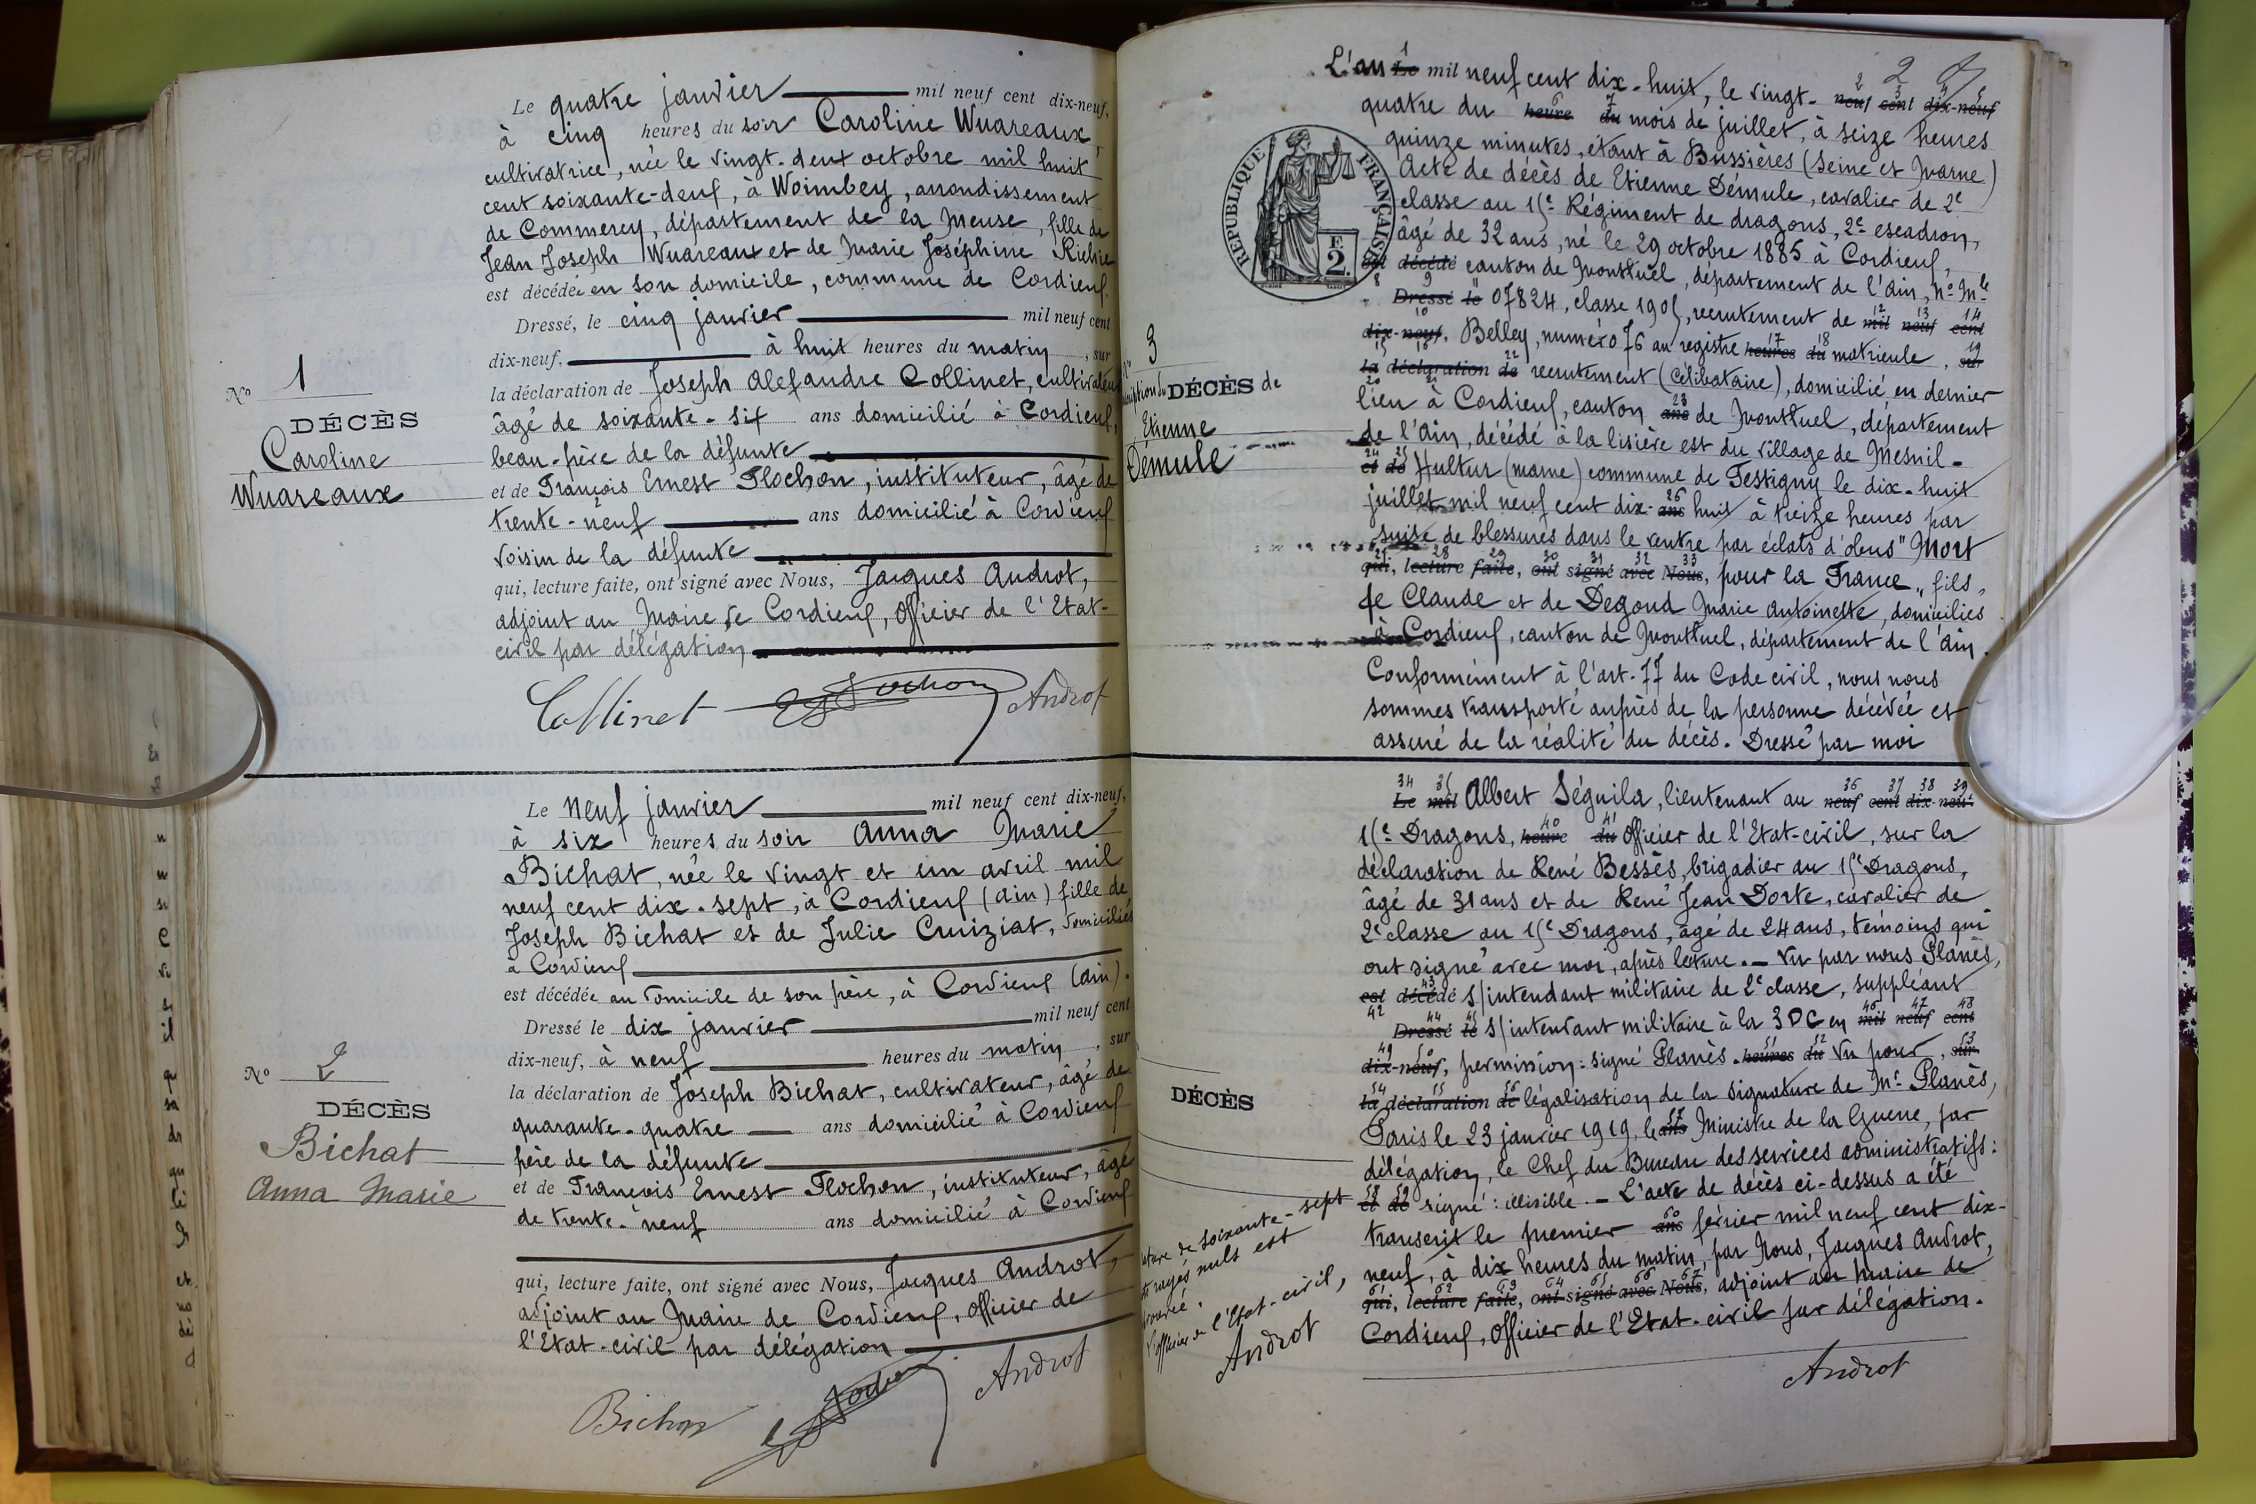 Le quatre janvier mil neuf cent dix-neuf,
à cinq heures du soir Caroline Wuareaux,
cultivatrice, née le vingt-deux octobre mil huit
cent soixante-deux, à Woimbey, arrondissement
de Commercy, département de la Meuse, fille de
Jean Joseph Wuareaux et de Marie Joséphine
est décédée en son domicile, commune de Cordieux.
Dressé, le cinq janvier mil neuf cent
dix-neuf, à huit heures du matin, sur
la déclaration de Joseph Alexandre Collinet, cultivateur
âgé de soixante-six ans domicilié à Cordieux,
beau-père de la défunte
et de François Ernest Flochon, instituteur, âgé de
trente-neuf ans domicilié à Cordieux
voisin de la défunte
qui, lecture faite, ont signé avec Nous, Jacques Androt,
adjoint au Maire de Cordieux, Officier de l'Etat-
civil par délégation
Collinet Flochon Androt
No 1
DÉCÈS
Caroline
Wuareaux
Le neuf janvier mil neuf cent dix-neuf,
à six heures du soir Anna Marie
Bichat, née le vingt et un avril mil
neuf cent dix-sept, à Cordieux (Ain) fille de
Joseph Bichat et de Julie Cruiziat, domiciliés
à Cordieux
est décédée au domicile de son père, à Cordieux (Ain).
Dressé le dix janvier mil neuf cent
dix-neuf, à neuf heures du matin, sur
la déclaration de Joseph Bichat, cultivateur, âgé de
quarante-quatre ans domicilié à Cordieux
père de la défunte
et de François Ernest Flochon, instituteur, âgé
de trente-neuf ans domicilié à Cordieux
qui, lecture faite, ont signé avec Nous, Jacques Androt,
adjoint au Maire de Cordieux, Officier de
l'Etat-civil par délégation
Bichat Flochon Androt
No 2
DÉCÈS
Bichat
Anna Marie
2
L'an 1 Le mil neuf cent dix-huit, le vingt- 2 neuf 3 cent 4 dix-5 neuf
quatre du 6 heure 7 du mois de juillet, à seize heures
quinze minutes, étant à Bussières (Seine et Marne)
Acte de décès de Etienne Démule, cavalier de 2e
classe au 15e Régiment de dragons, 2e escadron,
âgé de 32 ans, né le 29 octobre 1885 à Cordieux,
est décédé canton de Montluel, département de l'Ain, No Mle
8 9
Dressé le 07824, classe 1905, recrutement de 12 mil 13 neuf 14 cent
10 11
dix-neuf, Belley, numéro 76 au registre 17 heures 18 du matricule, 19 sur
15 16
la déclaration 22 de recrutement (célibataire), domicilié en dernier
20 21
lieu à Cordieux, canton 23 ans de Montluel, département
de l'Ain, décédé à la lisière est du village de Mesnil-
24 et 25 de Hultur (Marne) commune de Festigny le dix-huit
juillet mil neuf cent dix- 26 ans huit à treize heures par
suite de blessures dans le ventre par éclats d'obus "Mort
27 qui, 28 lecture 29 faite, 30 ont 31 signé 32 avec 33 Nous, pour la France", fils
de Claude et de Degoud Marie Antoinette, domiciliés
à Cordieux, canton de Montluel, département de l'Ain.
Conformément à l'art. 77 du Code civil, nous nous
sommes transporté auprès de la personne décédée et
assuré de la réalité du décès. Dressé par moi
34 Le 35 mil Albert Séguila, lieutenant au 36 neuf 37 cent 38 dix-39 neuf
15e Dragons, 40 heure 41 du Officier de l'Etat-civil, sur la
déclaration de René Bessès, brigadier au 15e Dragons,
âgé de 31 ans et de René Jean Dorte, cavalier de
2e classe au 15e Dragons, âgé de 24 ans, témoins qui
ont signé avec moi, après lecture. - Vu par nous Planès,
42 est 43 décédé s/intendant militaire de 2e classe, suppléant
44 Dressé 45 le s/intendant militaire à la 3 DC en 46 mil 47 neuf 48 cent
49 dix-50 neuf, permission: signé Planès. 51 heures 52 du Vu pour, 53 sur
54 la 55 déclaration 56 de légalisation de la signature de Mr Planès,
Paris le 23 janvier 1919, le 57 ans Ministre de la Guerre, par
délégation, le Chef du Bureau des services administratifs:
58 et 59 de signé: illisible. - L'acte de décès ci-dessus a été
transcrit le premier 60 ans février mil neuf cent dix-
neuf, à dix heures du matin, par Nous, Jacques Androt,
61 qui, 62 lecture 63 faite, 64 ont 65 signé 66 avec 67 Nous, adjoint au Maire de
Cordieux, Officier de l'Etat-civil par délégation.
Androt
RÉPUBLIQUE FRANÇAISE
F.
2.
No 3
DÉCÈS de
Etienne
Démule
DÉCÈS
de soixante-sept
rayés nuls est
l'Officier de l'Etat-civil,
Androt